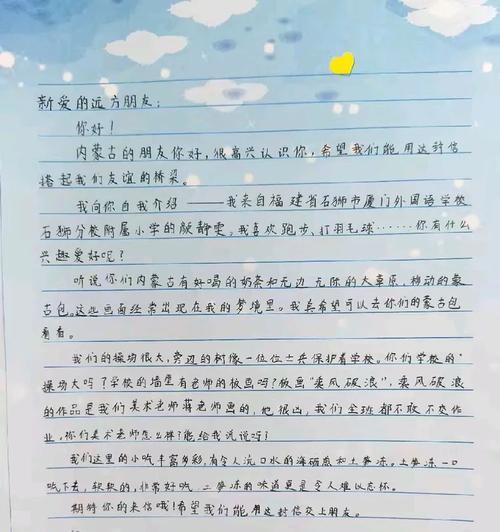 新爱的远方朋友：
你好！
内蒙古的朋友你好，很高兴认识你，希望我们能用这封信
搭起我们友谊的桥梁。
我向你自我介绍——我来自福建省石狮市厦门外国语学校
石狮分校附属小学的颜静雯，我喜欢跑步、打羽毛球……你有什么
兴趣爱好呢？
听说你们内蒙古有好喝的奶茶和无边无际的大草原，移动的蒙
古包，这些画面经常出现在我的梦境里。我真希望可以去你们的蒙古包
看看。
我们的操场很大，旁边的树像一位位士兵保护着学校。你们学校的
操场大吗？学校的墙里有老师的板画吗？版画“乘风破浪”，乘风破浪
的作品是我们美术老师蒋老师画的，他很凶，我们全班都不敢不交作
业。你们美术老师怎么样？能给我说说吗？
我们这里的小吃丰富多彩，有令人流口水的海蛎煎和土笋冻。土笋冻一口
吃下去，软软的，非常好吃，土笋冻的味道更是令人难以忘怀。
期待你的来信哦！希望我们能用这封信交上朋友。